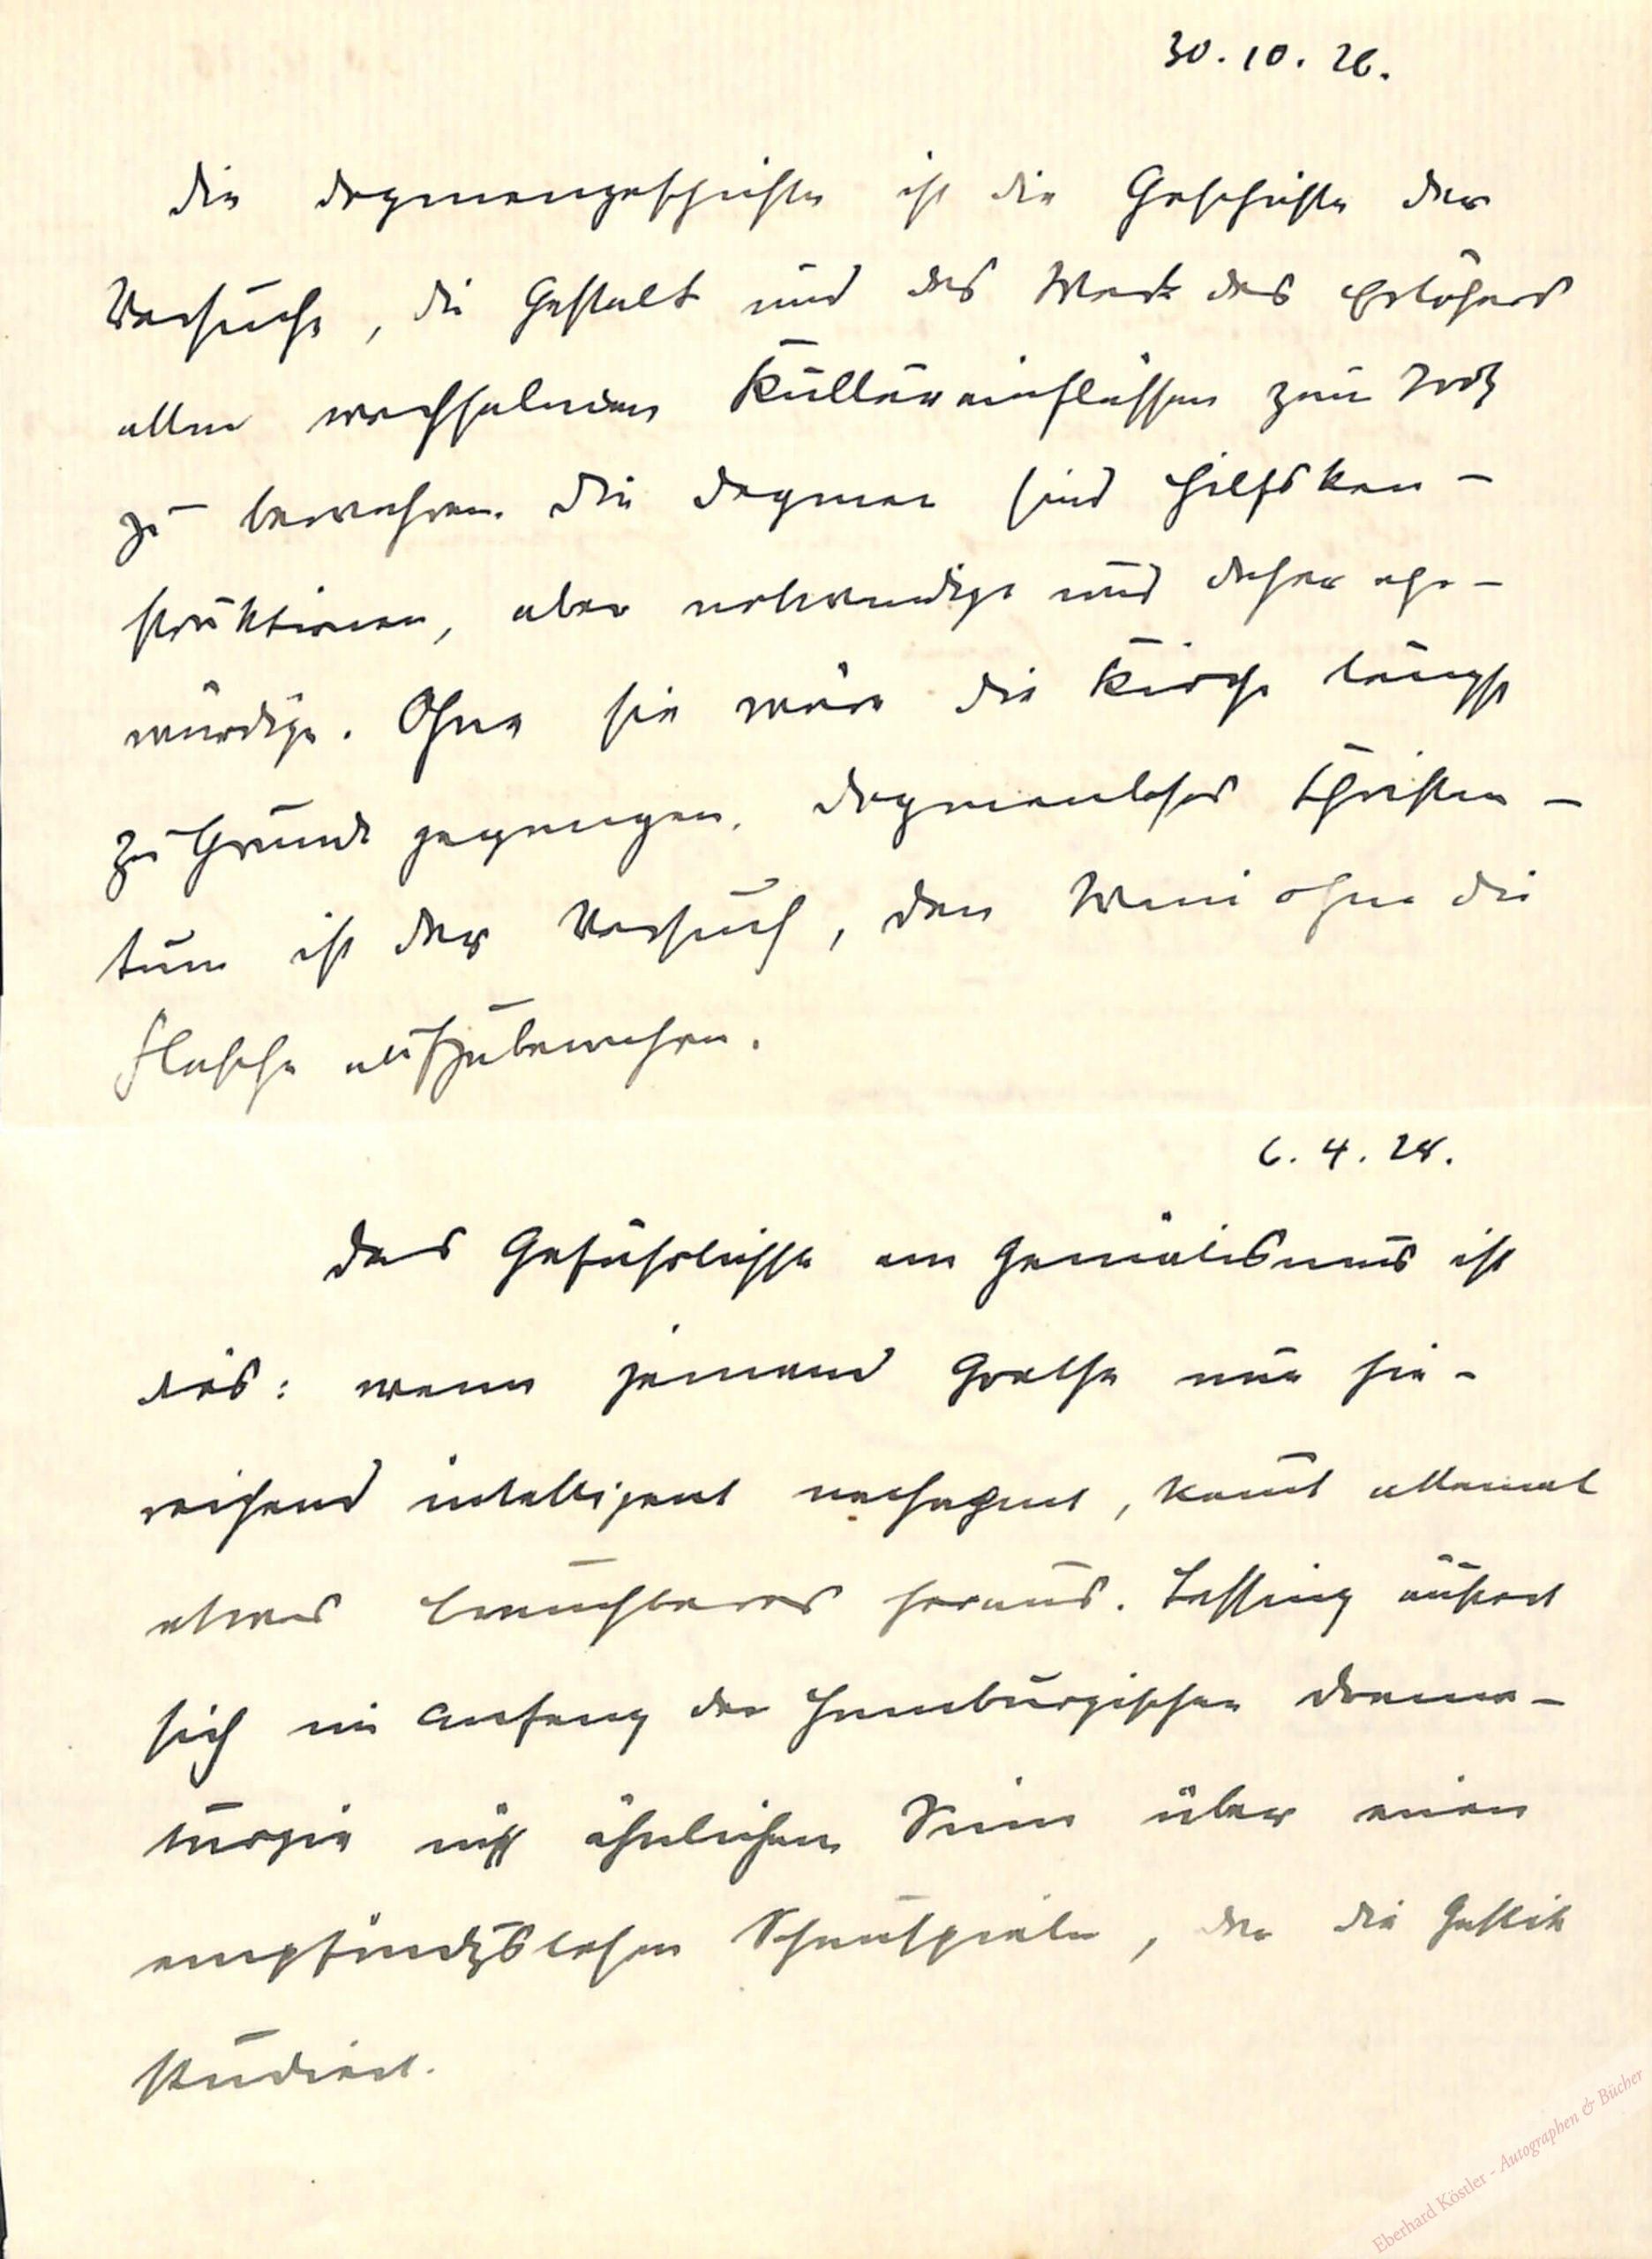 30.10.26.
Die Dogmengeschichte ist die Geschichte der
Versuche, die Gestalt und das Werk des Erlösers
allen wechselnden Kultureinflüssen zum Trotz
zu bewahren. Die Dogmen sind Hilfskon-
struktionen, aber notwendige und daher ehr-
würdige. Ohne sie wäre die Kirche längst
zu Grunde gegangen. Dogmenloses Christen-
tum ist der Versuch, den Wein ohne die
Flasche aufzubewahren.
6.4.28.
Das Gefährlichste am Genialismus ist
das: wenn jemand Goethe nur hin-
reichend intelligent nachahmt, kommt allemal
etwas brauchbares heraus. Lessing äußert
sich im Anfang der Hamburgischen Drama-
turgie in ähnlichem Sinn über einen
empfindungslosen Schauspieler, der die Gestik
studiert.
Eberhard Köstler - Autographen & Bücher